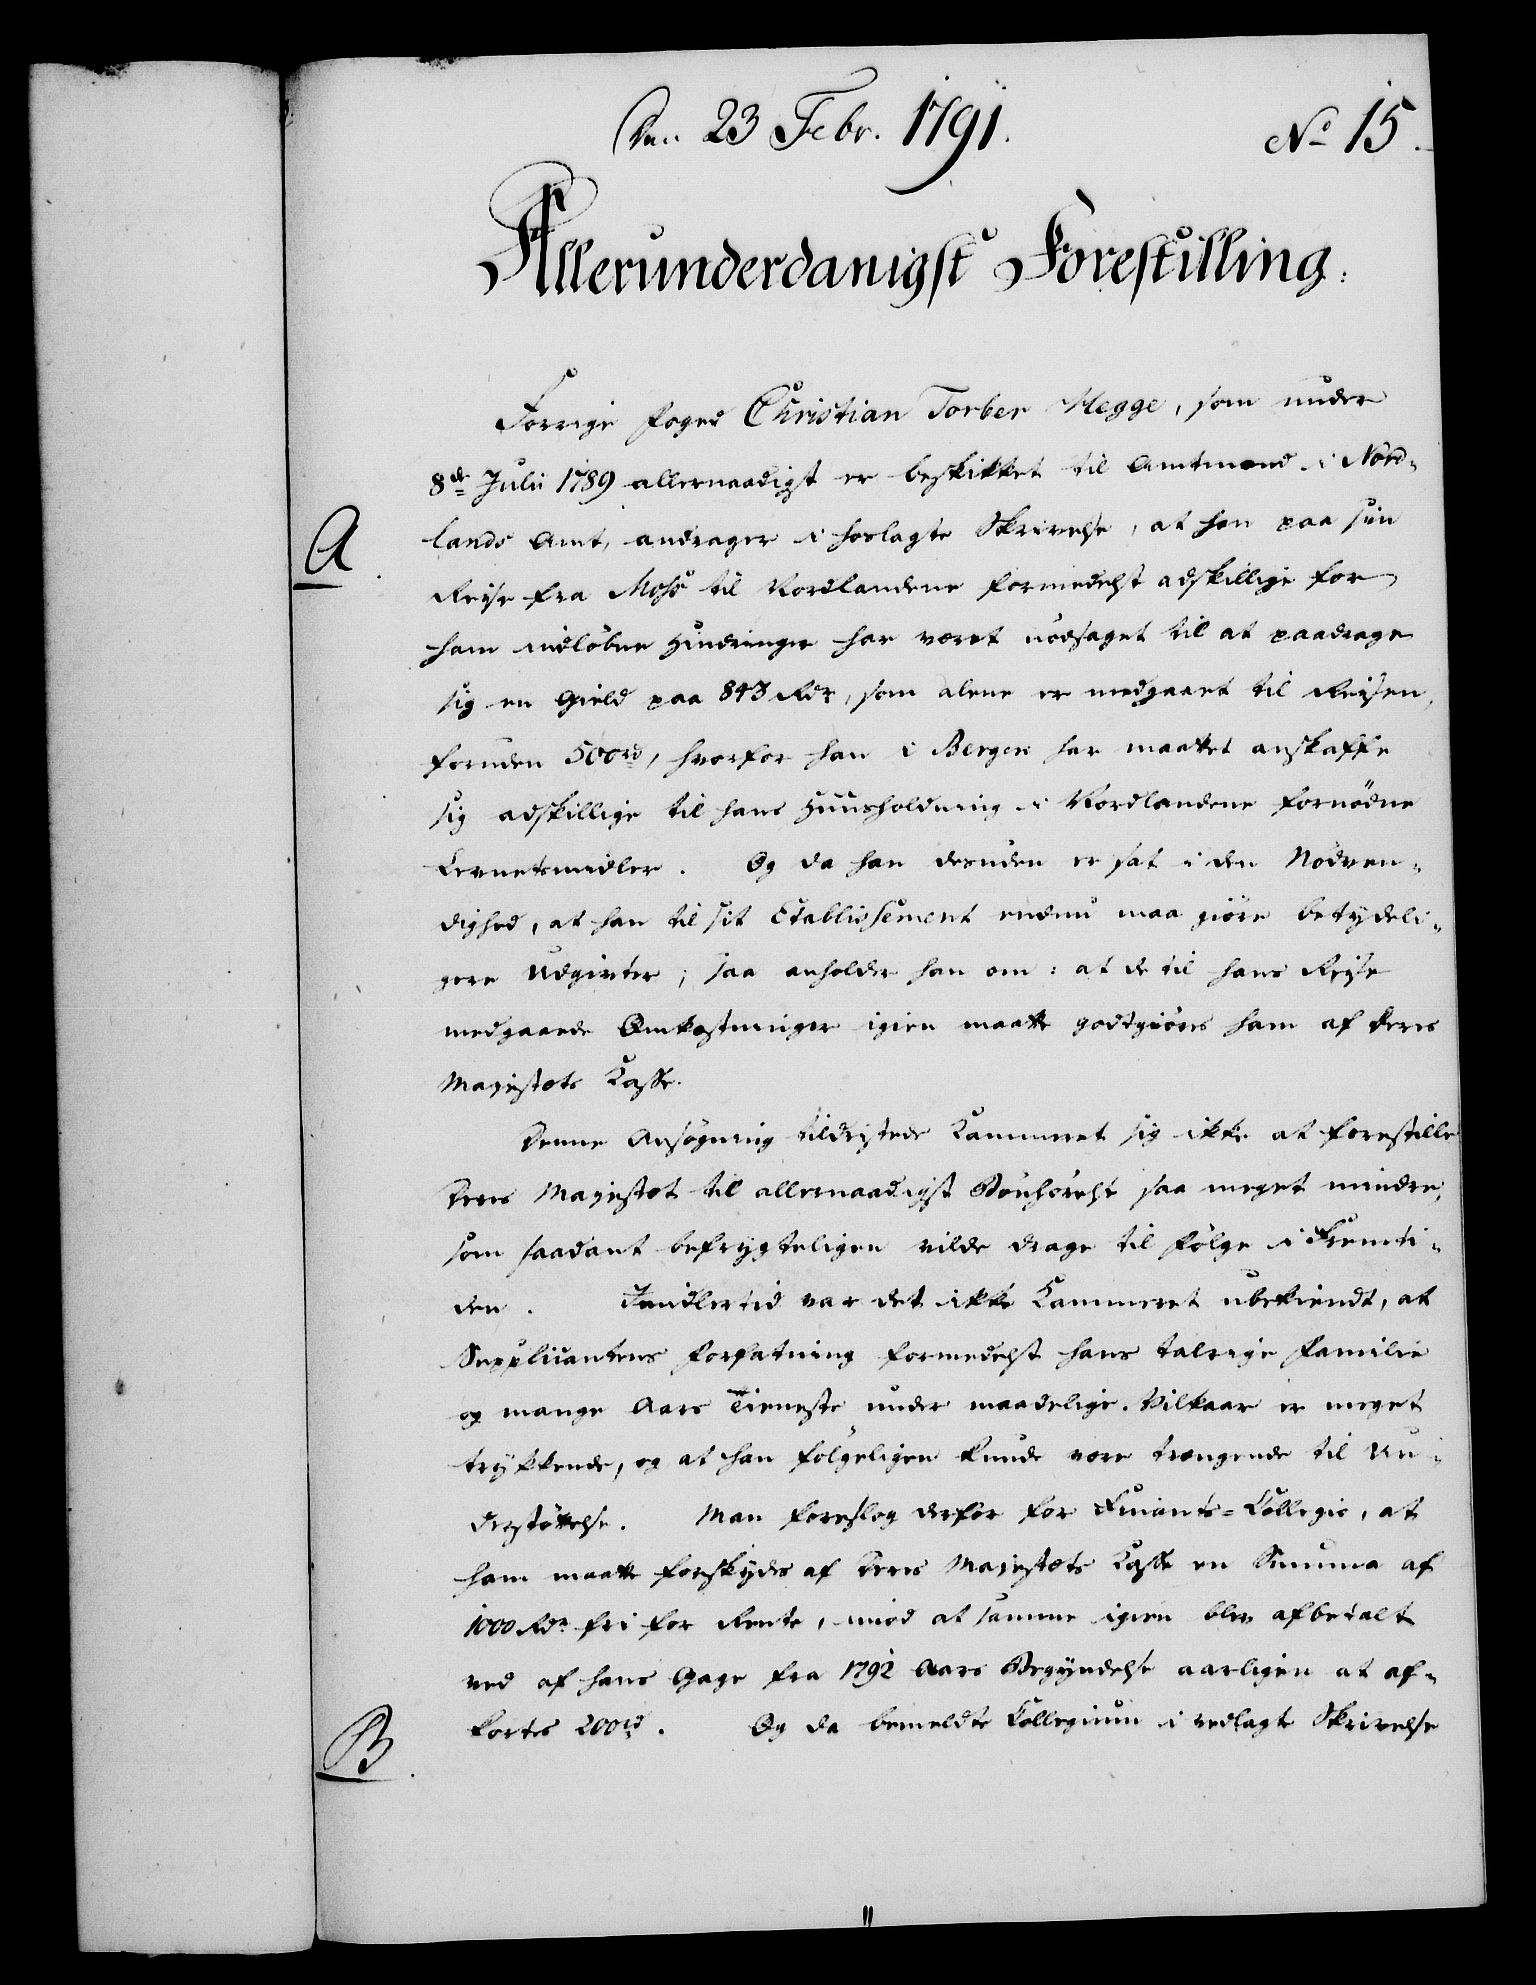 Den 23 Febr. 1791.
No 15.
Allerunderdanigst Forestilling.
Forrige Foged Christian Torber Hegge, som under
8de Julii 1789 allernaadigst er beskikket til Amtmand i Nord-
A
lands Amt, andrager i hoslagte Skrivelse, at han paa sin
Reise fra Moss til Nordlandene formedelst adskillige for
ham indløbne Hindringer har været nødsaget til at paadrage
sig en Gield paa 843 Rdr, som alene er medgaaet til Reisen,
foruden 500 rd, hvorfor han i Bergen har maattet anskaffe
sig adskillige til hans Huusholdning i Nordlandene fornødne
Levnetsmidler. Og da han desuden er sat i den Nødven-
dighed, at han til sit Etablissement endnu maa giøre betydeli-
gere Udgivter; saa anholder han om: at de til hans Reise
medgaaede Omkostninger igien maatte godtgiøres ham af Deres
Majestæts Kasse.
Denne Ansøgning tildristede Kammeret sig ikke at forestille
Deres Majestæt til allernaadigst Bønhørelse saa meget mindre,
som saadant befrygteligen vilde drage til Følge i Fremti-
den. Imidlertid var det ikke Kammeret ubekiendt, at
Supplicantens Forfatning formedelst hans talrige Familie
og mange Aars Tieneste under maadelige Vilkaar er meget
trykkende, og at han følgeligen kunde være trængende til Un-
derstøttelse. Man foreslog derfor for Finants-Collegio, at
ham maatte forskydes af Deres Majestæts Kasse en Summa af
1000 Rdr fri for Rente, imod at samme igien blev afbetalt
ved af hans Gage fra 1792 Aars Begyndelse aarligen at af-
B
kortes 200 rd. Og da bemeldte Collegium i vedlagte Skrivelse